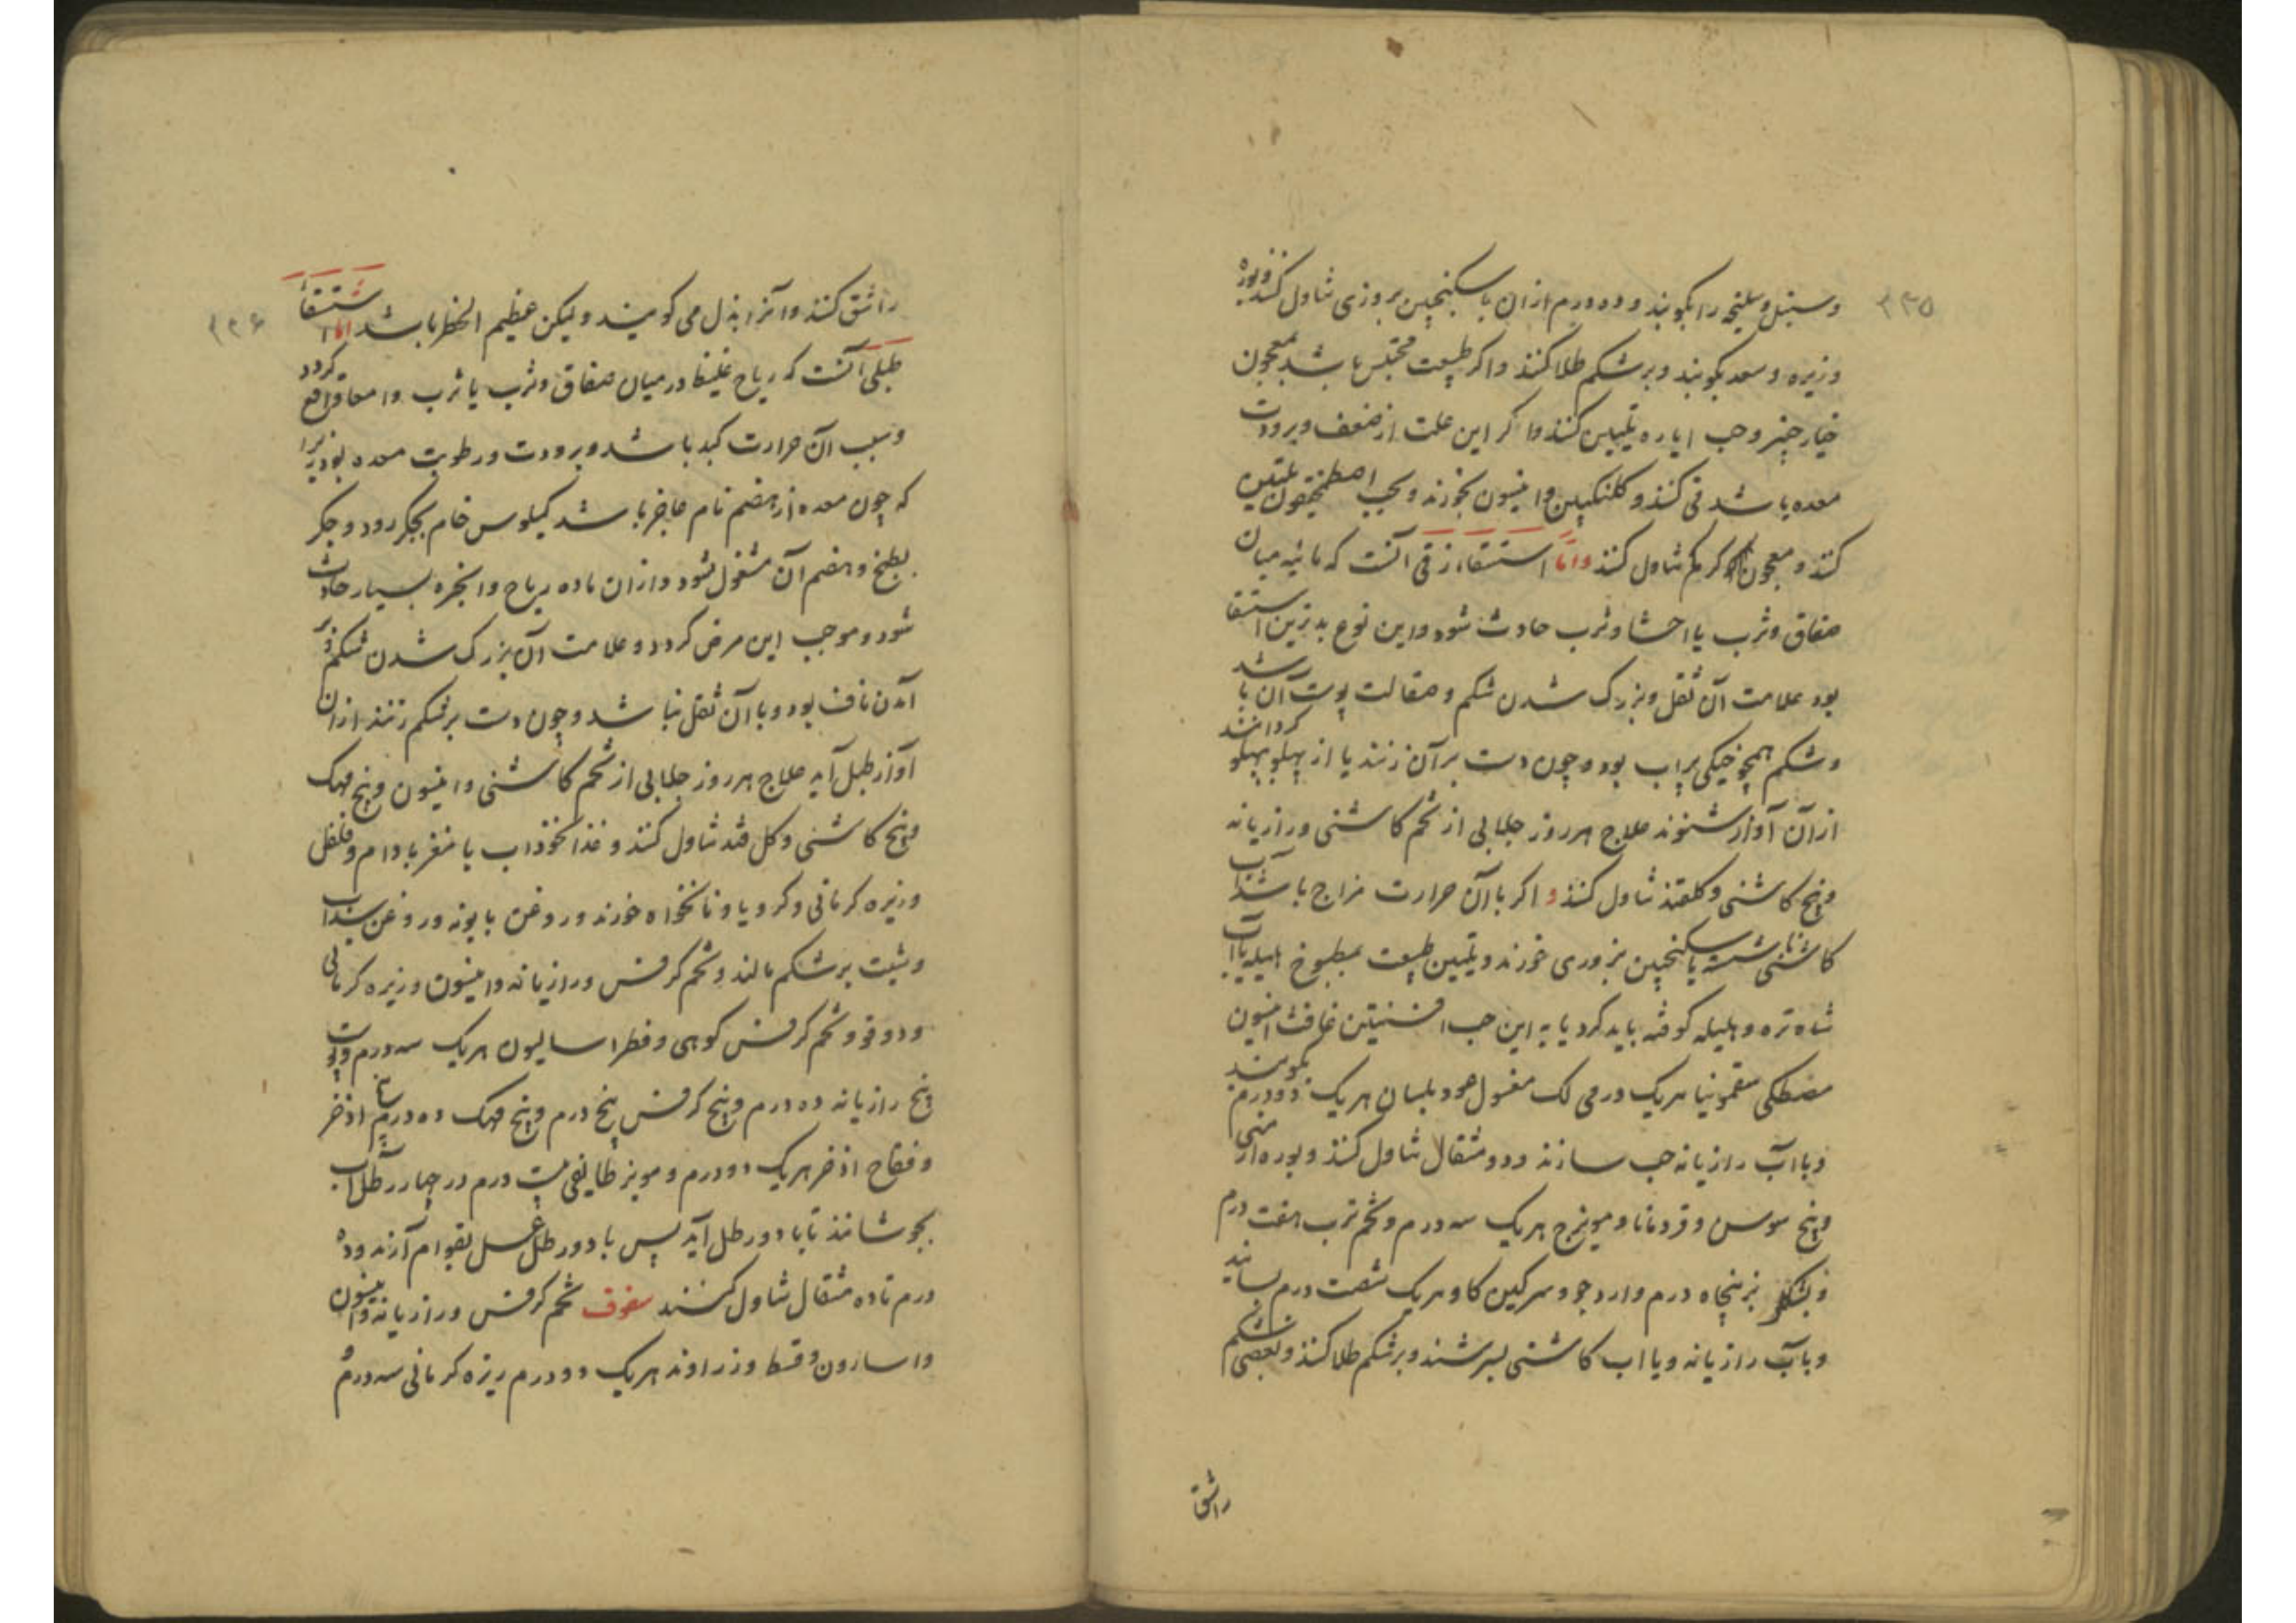 ۳۳۵
وسنبل وسلیخه را بکوبند و ده درم ازان با سکنجبین بروزی تناول کنند و بوره
وزیره وسعد بکوبند وبر شکم طلا کنند واکر طبیعت محتبس باشد بمعجون
خیار چنبر وحب ایاره تلیین کنند واکر این علت از ضعف وبرودت
معده باشد قی کنند و کلنکبین وانیسون بخورند و بحب اصطمخیقون تلیین
کنند و معجون کرکم تناول کنند واما استسقاء زقی آنست که مائیه میان
صفاق وثرب یا احشا وثرب حادث شود واین نوع بدترین استسقا
بود علامت آن ثقل وبزرک شدن شکم وصقالت پوست آن باشد
وشکم همچو خیکی پراب بود وچون دست برآن زنند یا از پهلو بپهلو کردانند
ازآن آواز شنوند علاج هر روز جلابی از تخم کاشنی ورازیانه
وبیخ کاشنی وکلقند تناول کنند و اکر باآن حرارت مزاج باشد آب
کاشنی ناشسته با سکنجبین بزوری خورند وتلیین طبیعت بمطبوخ هلیله یا آب
شاه تره وهلیله کوفته باید کرد یا به این حب افسنتین غافث انیسون
مصطکی سقمونیا هریک درمی لک مغسول عود بلسان هریک دودرم بکوبند
وبا آب رازیانه حب سازند ودو مثقال تناول کنند وبوره ارمنی
وبیخ سوسن وقردمانا ومویزج هریک سه درم وتخم ترب هفت درم
وپشکل بز پنجاه درم وارد جو وسرکین کاو هریک شصت درم بسایند
وبا آب رازیانه ویا اب کاشنی بسرشند وبرشکم طلا کنند وبعضی شکم
راشق
۳۳۶
راشق کنند وآنرا بذل می کویند ولیکن عظیم الخطر باشد اما استسقاء
طبلی آنست که ریاح غلیظ درمیان صفاق وثرب یا ثرب وامعا واقع کردد
وسبب آن حرارت کبد باشد وبرودت ورطوبت معده بود زیرا
که چون معده از هضم تام عاجز باشد کیلوس خام بجکر رود وجکر
بطبخ وهضم آن مشغول شود وازان ماده ریاح وابخره بسیار حادث
شود وموجب این مرض کردد وعلامت آن بزرک شدن شکم وبر
آمدن ناف بود وباآن ثقل نباشد وچون دست برشکم زنند ازان
آواز طبل آید علاج هر روز جلابی از تخم کاشنی وانیسون وبیخ مهک
وبیخ کاشنی وکل قند تناول کنند وغذا نخوداب با مغز بادام وفلفل
وزیره کرمانی وکرویا ونانخواه خورند وروغن بابونه وروغن سداب
وشبت برشکم مالند وتخم کرفس ورازیانه وانیسون وزیره کرمانی
ودوقو وتخم کرفس کوهی وفطراسالیون هریک سه درم وپوست
بیخ رازیانه ده درم وبیخ کرفس پنج درم وبیخ مهک ده درم اذخر
وفقاح اذخر هریک دودرم ومویز طایفی بیست درم در چهار رطل آب
بجوشانند تا با دورطل آید پس با دورطل عسل بقوام آرند وده
درم تاده مثقال تناول کنند سفوف تخم کرفس ورازیانه وانیسون
واسارون وقسط وزراوند هریک دودرم زیره کرمانی سه درم و